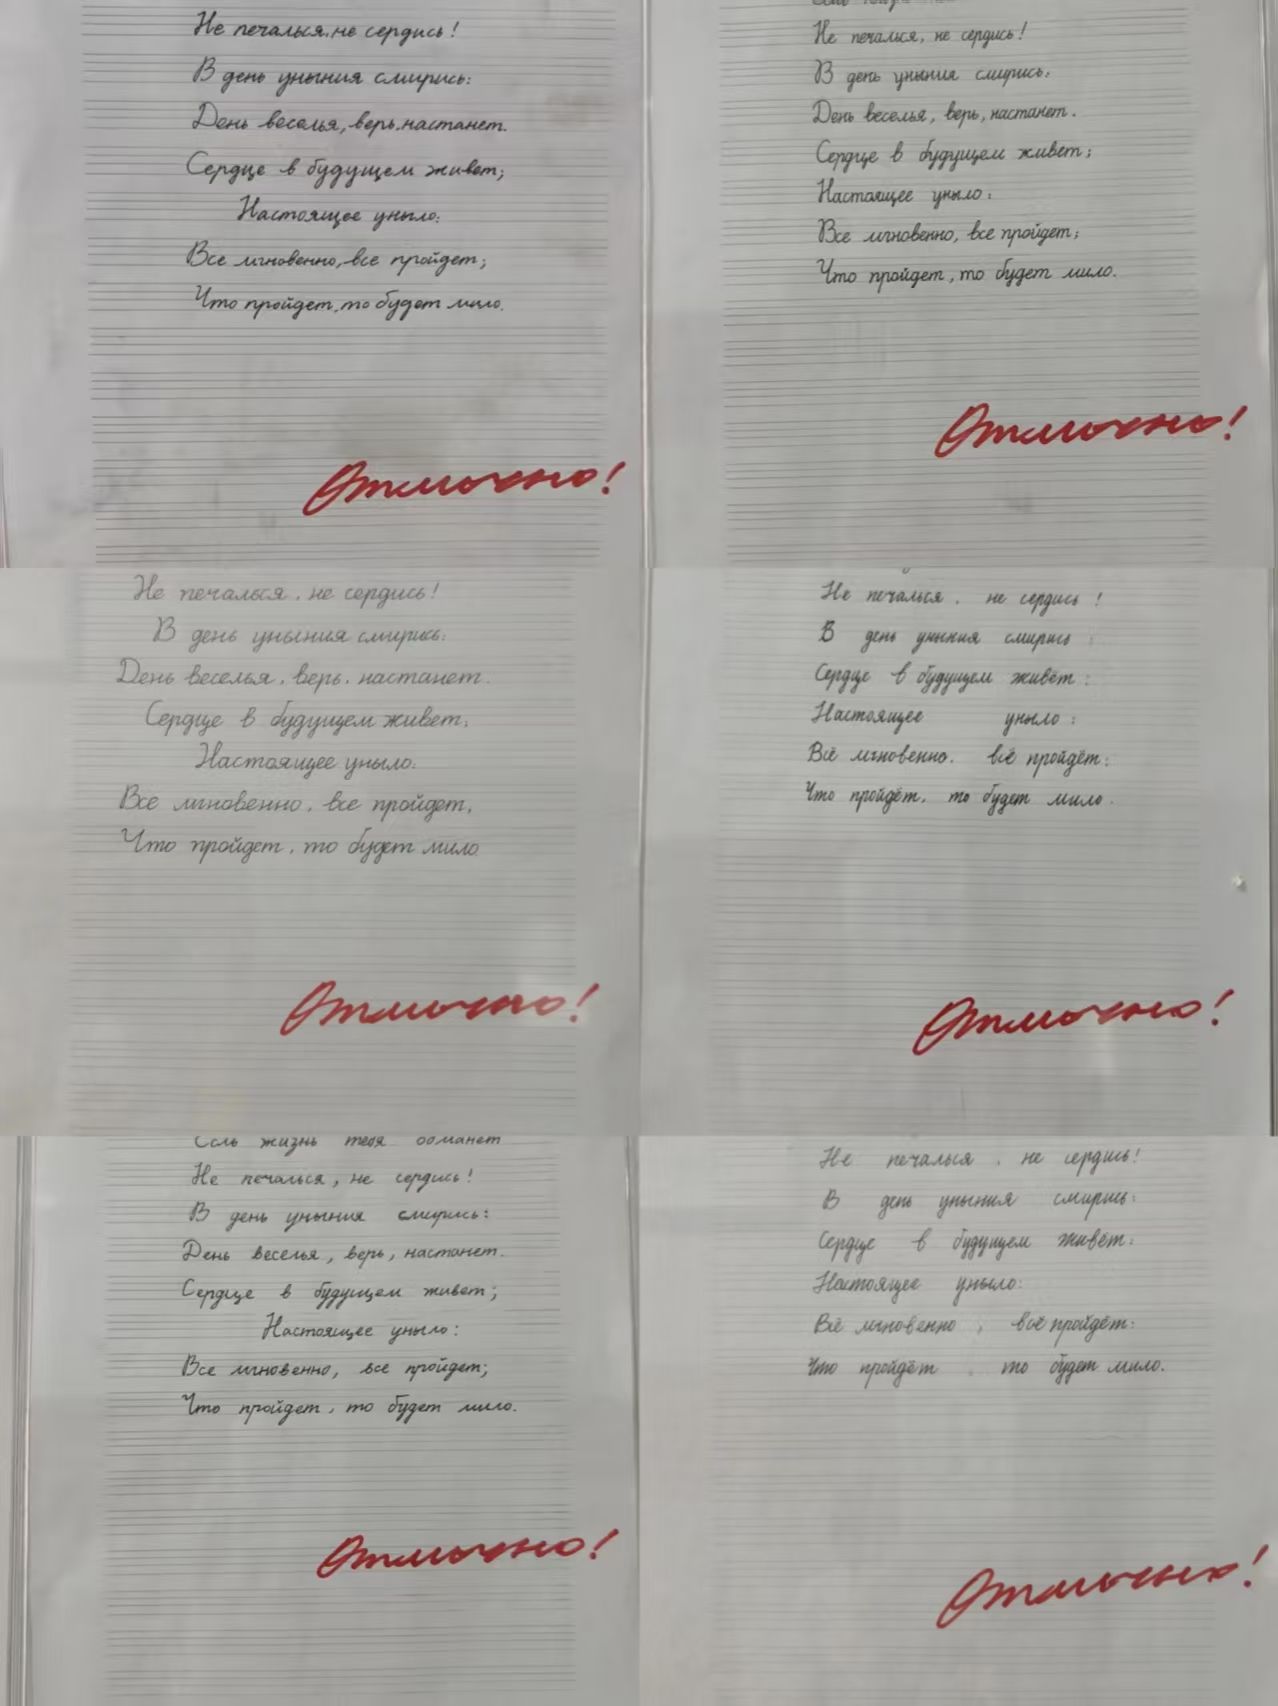 Не печалься, не сердись!
В день уныния смирись:
День веселья, верь, настанет.
Сердце в будущем живет;
Настоящее уныло:
Все мгновенно, все пройдет;
Что пройдет, то будет мило.
Отлично!
Не печалься, не сердись!
В день уныния смирись:
День веселья, верь, настанет.
Сердце в будущем живет;
Настоящее уныло:
Все мгновенно, все пройдет;
Что пройдет, то будет мило.
Отлично!
Не печалься, не сердись!
В день уныния смирись:
День веселья, верь, настанет.
Сердце в будущем живет;
Настоящее уныло:
Все мгновенно, все пройдет,
Что пройдет, то будет мило
Отлично!
Не печалься, не сердись!
В день уныния смирись:
Сердце в будущем живёт:
Настоящее уныло:
Всё мгновенно, всё пройдёт:
Что пройдёт, то будет мило.
Отлично!
жизнь тебя обманет
Не печалься, не сердись!
В день уныния смирись:
День веселья, верь, настанет.
Сердце в будущем живет;
Настоящее уныло:
Все мгновенно, все пройдет;
Что пройдет, то будет мило.
Отлично!
Не печалься, не сердись!
В день уныния смирись:
Сердце в будущем живёт:
Настоящее уныло:
Всё мгновенно, всё пройдёт:
Что пройдёт, то будет мило.
Отлично!